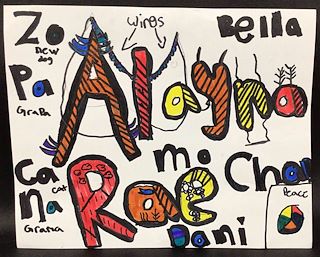 Zo
new dog
wings
Bella
Pa
GraPa
Alayna
Ca
cat
mo
Cha
na
Grama
Rae
Dani
Peace